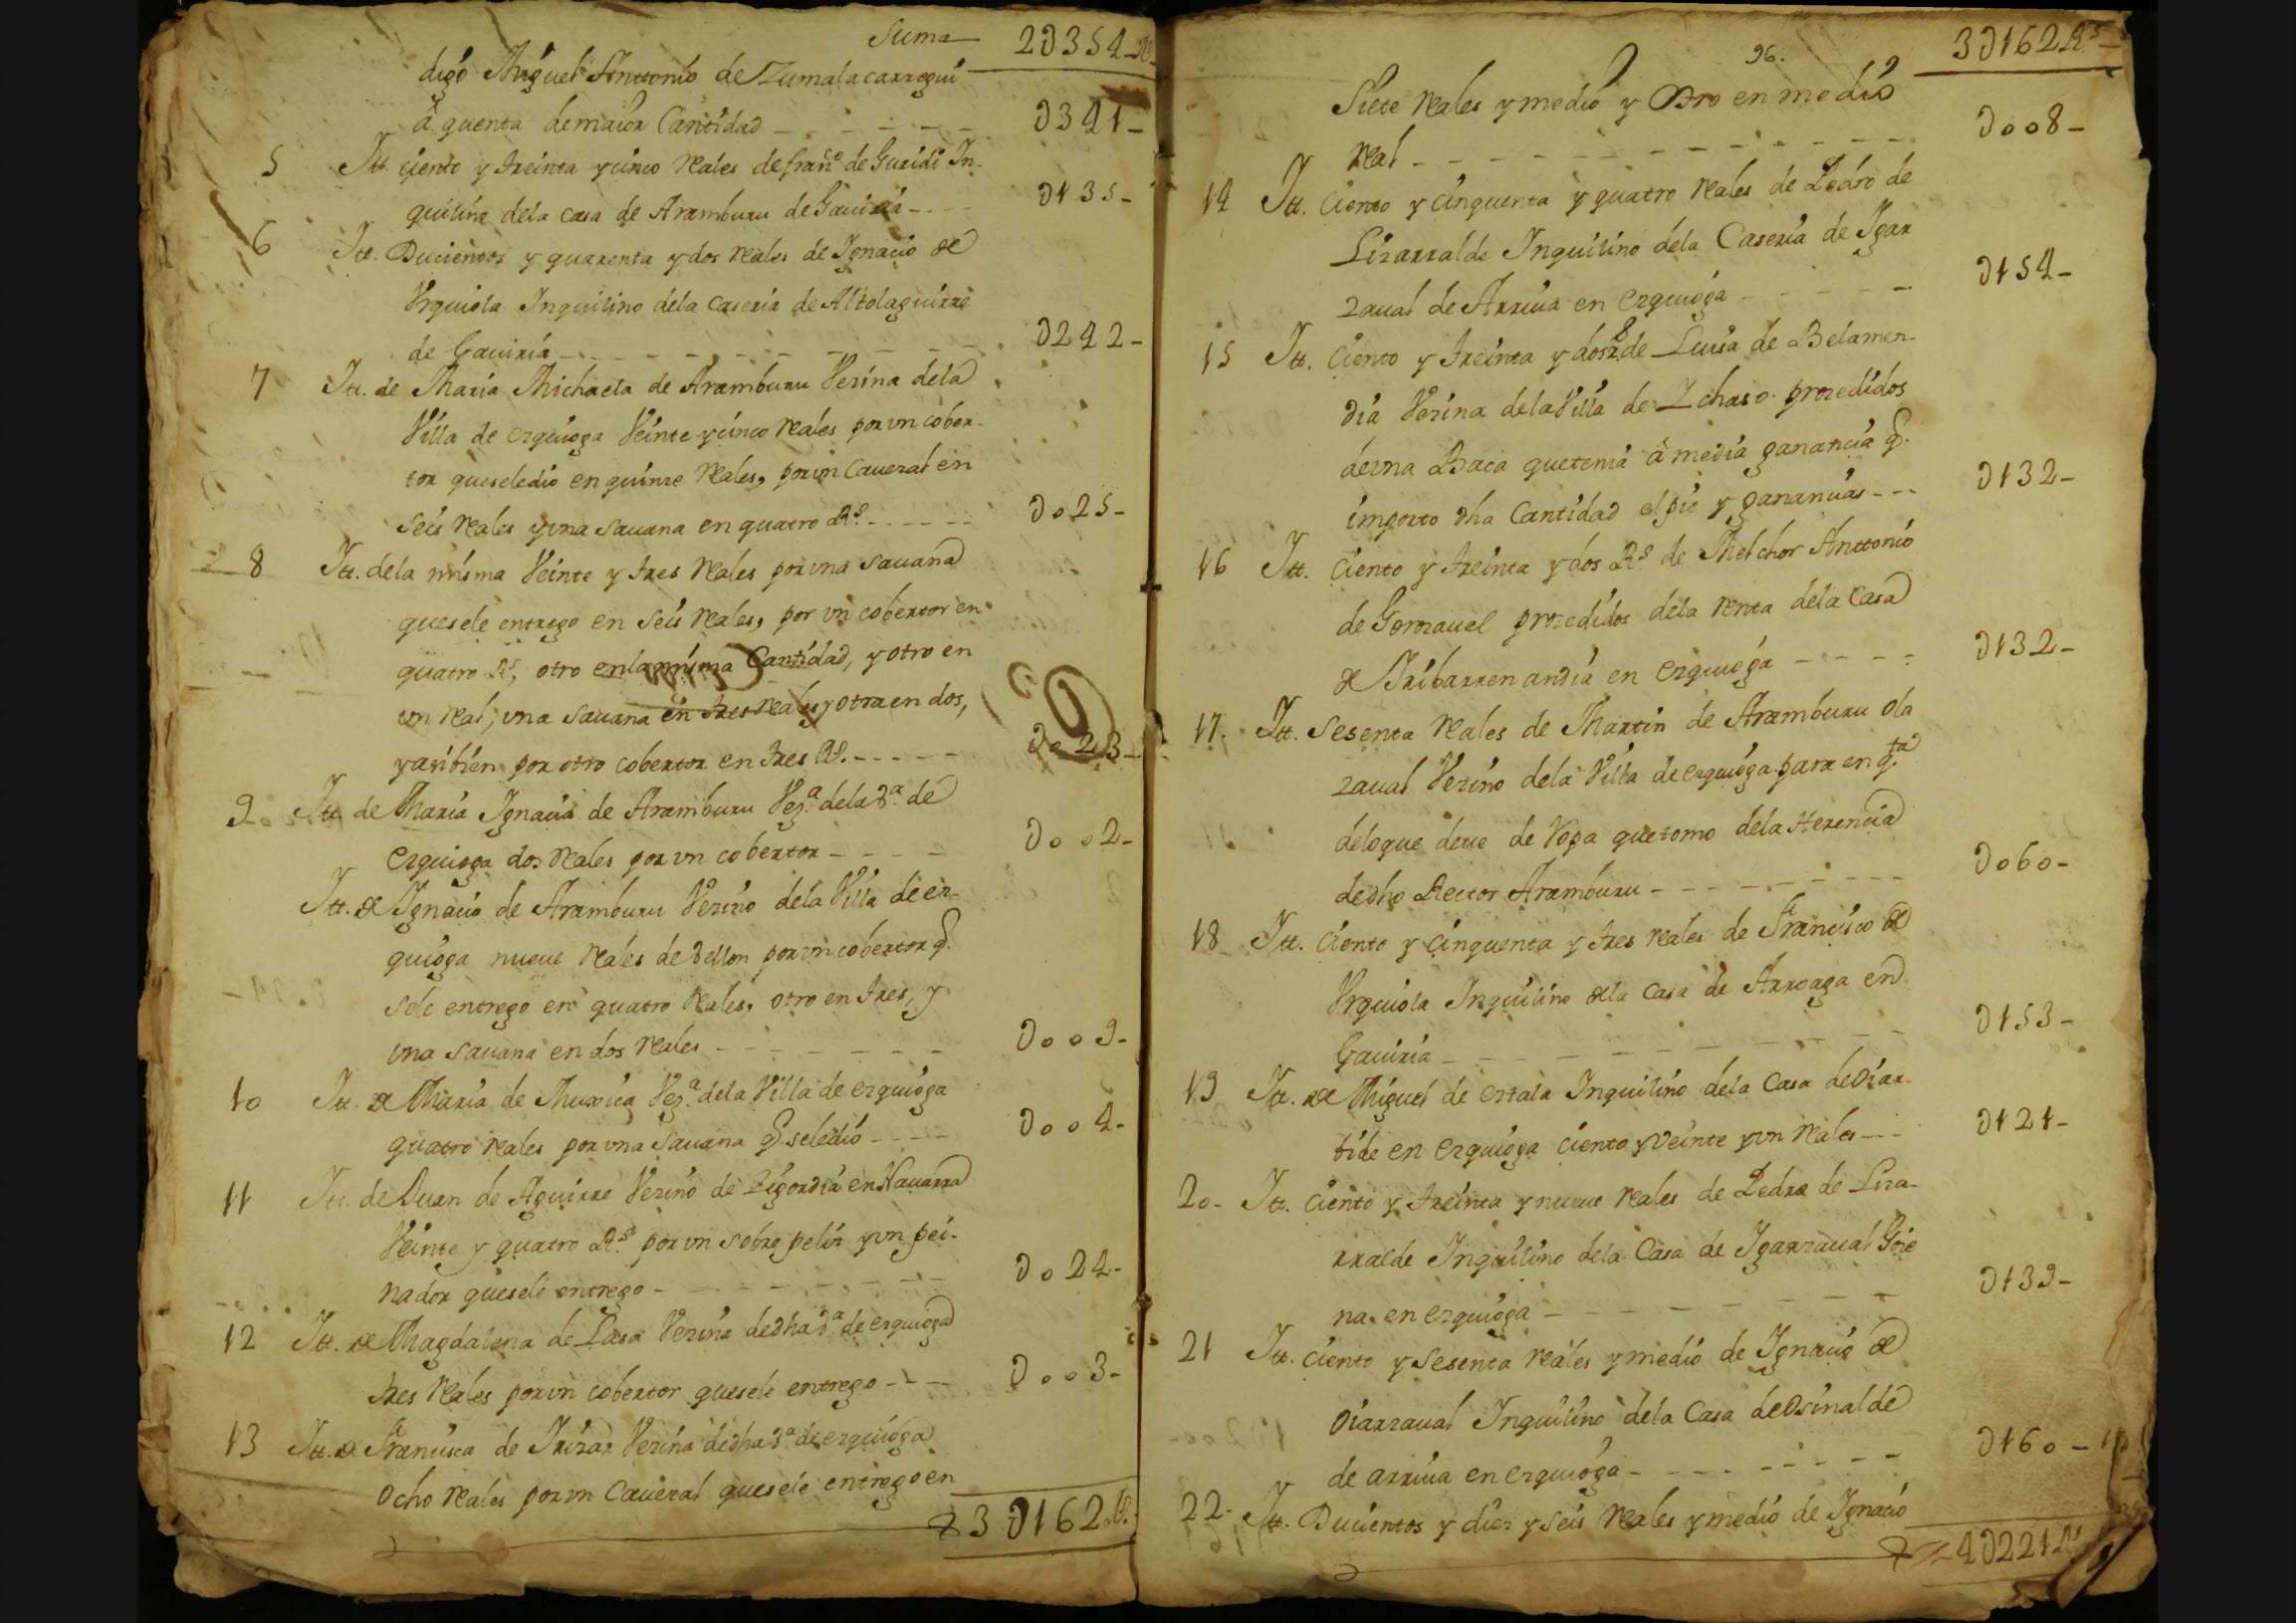 Suma 2U354 Rs
digo Miguel Anttonio de Zumalacarregui
â quenta de maior Cantidad U341
5 Itt. ciento y treinta y cinco Reales de fran.co de Guridi In-
quilino dela casa de Aramburu de Gaviria U135
6 Itt. Ducientos y quarenta y dos Reales de Ignacio de
Vrquiola Inquilino dela caseria de Altolaguirre
de Gaviria U242
7 Itt. de Maria Michaela de Aramburu Vezina dela
Villa de ezquioga Veinte y cinco Reales por vn cober-
tor que sele dio en quinze Reales, por vn Cavezal en
seis Reales y vna savana en quatro Rs. U025
8 Itt. dela misma Veinte y tres Reales por vna savana
que sele entrego en seis Reales, por vn cobertor en
quatro Rs, otro enla misma Cantidad, y otro en
vn Real, vna savana en tres Reales y otra en dos,
y asibien por otro cobertor en tres Rs. U023
9 Itt. de Maria Ignacia de Aramburu Vez.a dela V.a de
Ezquioga dos Reales por vn cobertor U002
Itt. de Ignacio de Aramburu Vezino dela Villa de ez-
quioga nueve Reales de Vellon por vn cobertor q.
sele entrego en quatro Reales, otro en tres, y
vna savana en dos Reales U009
10 Itt. de Maria de Muxica Vez.a dela Villa de ezquioga
quatro Reales por vna savana q. sele dio U004
11 Itt. de Juan de Aguirre Vezino de Zigordia en Navarra
Veinte y quatro Rs. por vn sobrepeliz y vn pei-
nador que sele entrego U024
12 Itt. de Magdalena de Lasa Vezina de dha V.a de ezquioga
tres Reales por vn cobertor que sele entrego U003
13 Itt. de Francisca de Irizar Vezina de dha V.a de ezquioga
ocho Reales por vn Cavezal que sele entrego en
3U162 Rs.
96. 3U162 Rs
Siete Reales y medio y Otro en medio
Real U008
14 Itt. Ciento y cinquenta y quatro Reales de Pedro de
Lizarralde Inquilino dela Caseria de Igar
zaval de Arriva en Ezquioga U154
15 Itt. Ciento y treinta y dos Rs de Luisa de Belamen-
dia Vezina dela Villa de Ichaso. prozedidos
de vna Baca que tenia â media ganancia q.
importo dha Cantidad el pie y ganancias U132
16 Itt. Ciento y treinta y dos Rs. de Melchor Anttonio
de Gorozavel prozedidos dela Renta dela Casa
de Iribarren andia en Ezquioga U132
17. Itt. Sesenta Reales de Martin de Aramburu Ola
zaval Vezino dela Villa de ezquioga para en q.ta
delo que deve de Ropa que tomo dela Herencia
de dho Rector Aramburu U060
18 Itt. Ciento y cinquenta y tres Reales de Francisco de
Vrquiola Inquilino dela Casa de Arroaga en
Gaviria U153
19 Itt. de Miguel de Ertala Inquilino dela Casa de Oiar-
tide en Ezquioga ciento y Veinte y vn Reales U121
20 Itt. Ciento y treinta y nueve Reales de Pedro de Liza-
rralde Inquilino dela Casa de Igarzaval Goie
na en Ezquioga U139
21 Itt. Ciento y sesenta Reales y medio de Ignacio de
Oiarzaval Inquilino dela Casa de Osinalde
de arriva en Ezquioga U160
22 Itt. Ducientos y diez y seis Reales y medio de Ignacio
4U221 Rs